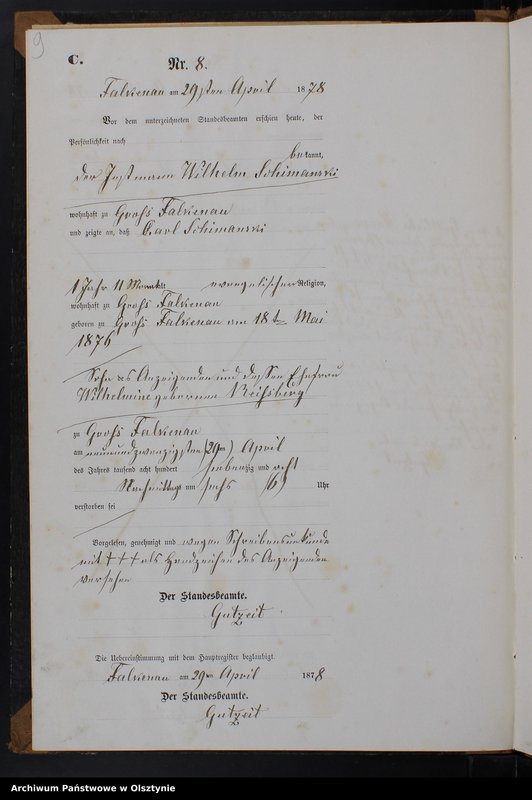 9
C.
Nr. 8.
Falkenau am 29sten April 1878
Vor dem unterzeichneten Standesbeamten erschien heute, der
Persönlichkeit nach
bekannt,
der Instmann Wilhelm Schimanski
wohnhaft zu Groß Falkenau
und zeigte an, daß Carl Schimanski
1 Jahr 11 Monat alt evangelischer Religion,
wohnhaft zu Groß Falkenau
geboren zu Groß Falkenau am 18t Mai
1876
Sohn des Anzeigenden und dessen Ehefrau
Wilhelmine geborenen
zu Groß Falkenau
am neunundzwanzigsten (29ten) April
des Jahres tausend acht hundert siebenzig und acht
Nachmittags um sechs (6) Uhr
verstorben sei
Vorgelesen, genehmigt und wegen Schreibensunkunde
mit +++ als Handzeichen des Anzeigenden
versehen
Der Standesbeamte.
Gutzeit
Die Uebereinstimmung mit dem Hauptregister beglaubigt.
Falkenau am 29ten April 1878
Der Standesbeamte.
Gutzeit
Archiwum Państwowe w Olsztynie